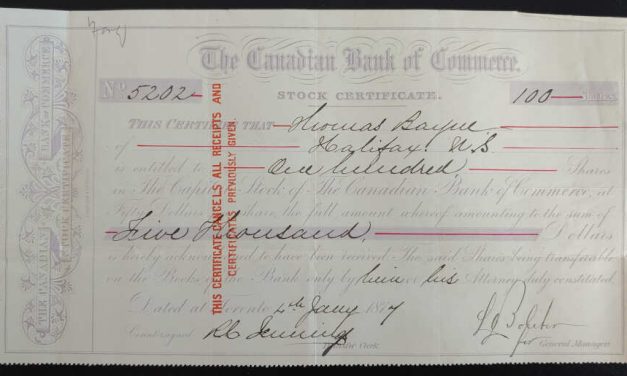 The Canadian Bank of Commerce.
No. 5202
STOCK CERTIFICATE.
100 Shares
THIS CERTIFIES THAT Thomas Bayne
of Halifax N.S
is entitled to One hundred Shares
in The Capital Stock of The Canadian Bank of Commerce, at
Fifty Dollars per Share, the full amount whereof amounting to the sum of
Five Thousand Dollars
is hereby acknowledged to have been received. The said Shares being transferable
on the Books of the Bank only by him or his Attorney duly constituted.
Dated at Toronto 4th Jany 1877
Countersigned
Clerk
for General Manager
THIS CERTIFICATE CANCELS ALL RECEIPTS AND
CERTIFICATES PREVIOUSLY GIVEN.
THE CANADIAN BANK OF COMMERCE
STOCK CERTIFICATE